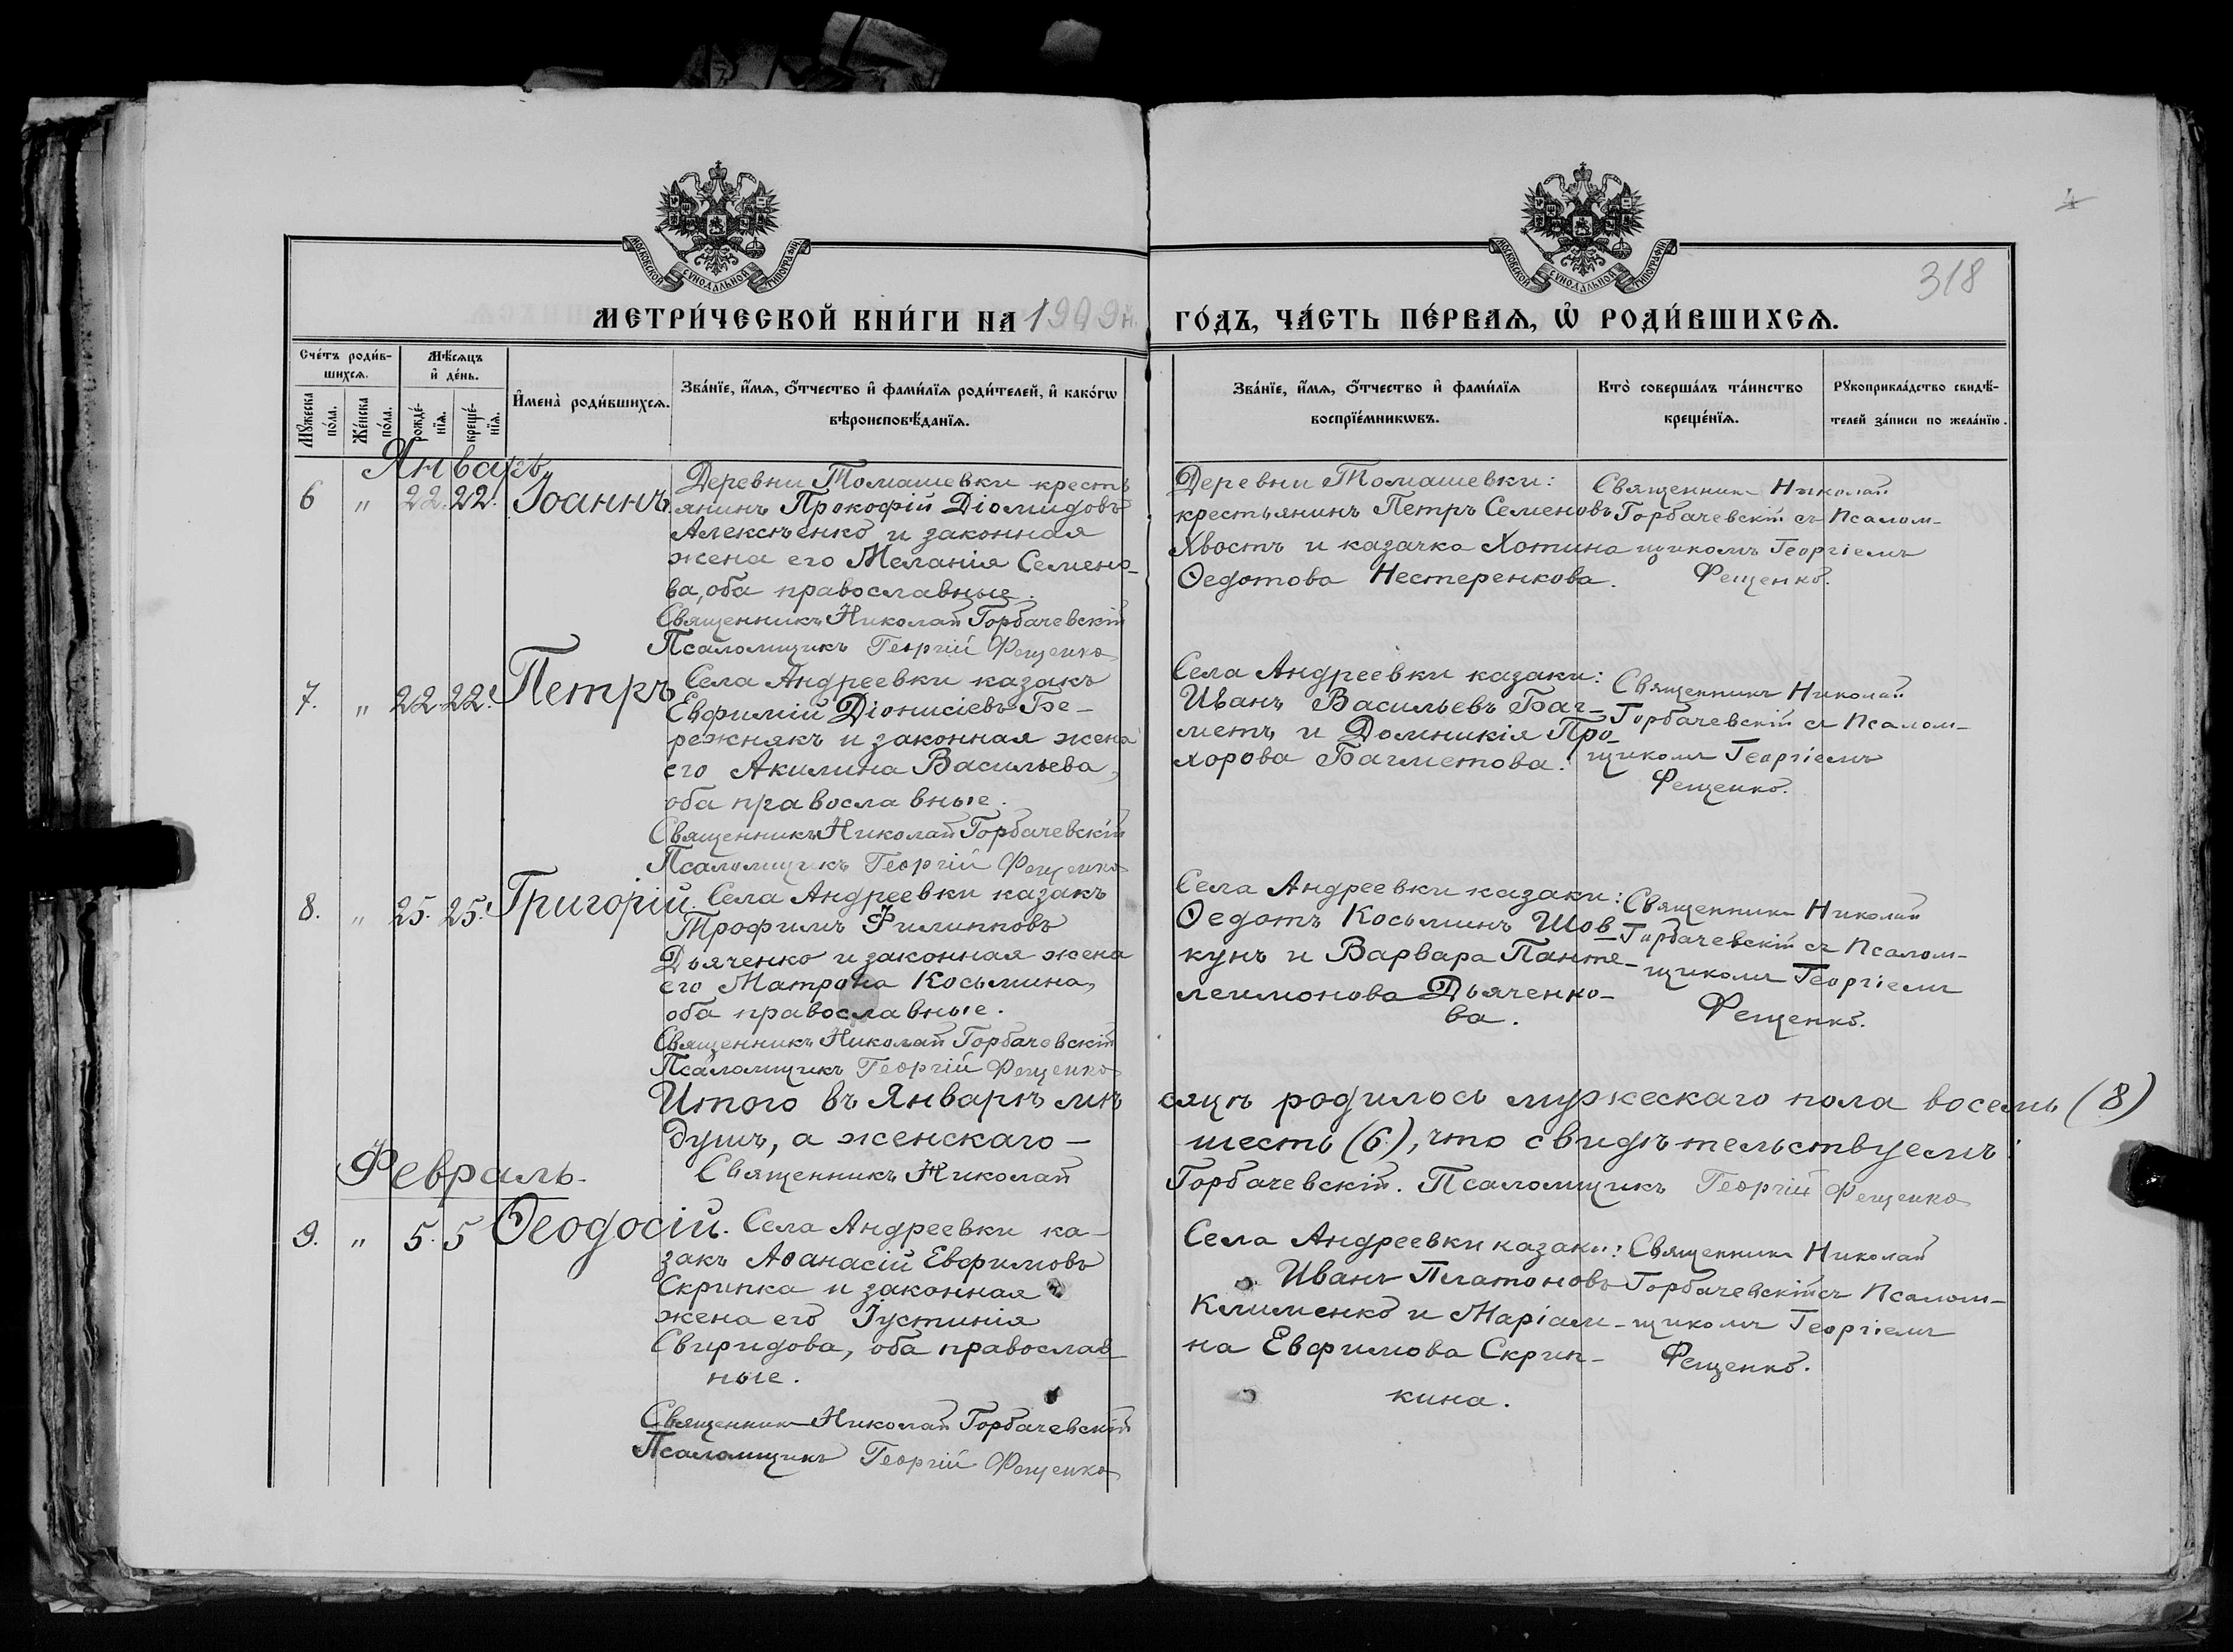 МОСКОВСКОЙ СУНОДАЛЬНОЙ ТИПОГРАФІИ
МОСКОВСКОЙ СУНОДАЛЬНОЙ ТИПОГРАФІИ
318
МЕТРИ́ЧЕСКОЙ КНИ́ГИ НА
ГО́ДЪ, ЧА́СТЬ ПЕ́РВАѦ, Ѡ҆ РОДИ́ВШИХСѦ.
Сче́тъ роди́в-
шихсѧ.
Мѣ́сѧцъ
и҆ де́нь.
Мꙋ́жеска
по́ла.
Же́нска
по́ла.
рожде́-
нїѧ.
креще́-
нїѧ.
И҆мена̀ роди́вшихсѧ.
Зва́нїе, и҆́мѧ, ѻ҆́тчество и҆ фами́лїѧ роди́телей, и҆ како́гѡ
вѣроисповѣ́данїѧ.
Зва́нїе, и҆́мѧ, ѻ҆́тчество и҆ фами́лїѧ
воспрїе́мникѡвъ.
Кто̀ соверша́лъ та́инство
креще́нїѧ.
Рꙋкоприкла́дство свидѣ́-
телей за́писи по жела́нїю.
Январь
6 " 22. 22. Іоаннъ.
Деревни Томашевки кресть
янинъ Прокофій Діомидовъ
Алексѣенко и законная
жена его Меланія Семено-
ва, оба православные.
Священникъ Николай Горбачевскій
Псаломщикъ Георгій Фещенко
Деревни Томашевки:
крестьянинъ Петръ Семеновъ
Хвостъ и казачка Хотина
Ѳедотова Нестеренкова.
Священникъ Николай
Горбачевскій съ Псалом-
щикомъ Георгіемъ
Фещенко.
7. " 22. 22. Петръ
Села Андреевки казакъ
Евфимій Діонисіевъ Бе-
режнякъ и законная жена
его Акилина Васильева,
оба православные.
Священникъ Николай Горбачевскій
Псаломщикъ Георгій Фещенко
Села Андреевки казаки:
Иванъ Васильевъ Баг-
метъ и Домникія Про-
хорова Багметова.
Священникъ Николай
Горбачевскій съ Псалом-
щикомъ Георгіемъ
Фещенко.
8. " 25. 25. Григорій.
Села Андреевки казакъ
Трофимъ Филипповъ
Дьяченко и законная жена
его Матрона Косьмина,
оба православные.
Священникъ Николай Горбачевскій
Псаломщикъ Георгій Фещенко
Села Андреевки казаки:
Ѳедотъ Косьминъ Шов-
кунъ и Варвара Панте-
леимонова Дьяченко-
ва.
Священникъ Николай
Горбачевскій съ Псалом-
щикомъ Георгіемъ
Фещенко.
Итого въ Январѣ мѣ
сяцѣ родилось мужескаго пола восемь (8)
душъ, а женскаго -
шесть (6), что свидѣтельствуемъ:
Священникъ Николай
Горбачевскій. Псаломщикъ Георгій Фещенко
Февраль.
9. " 5. 5 Ѳеодосій.
Села Андреевки ка-
закъ Аѳанасій Евфимовъ
Скрипка и законная
жена его Іустинія
Свиридова, оба православ-
ные.
Священникъ Николай Горбачевскій
Псаломщикъ Георгій Фещенко
Села Андреевки казаки:
Иванъ Платоновъ
Клименко и Маріам-
на Евфимова Скрип-
кина.
Священникъ Николай
Горбачевскій съ Псалом-
щикомъ Георгіемъ
Фещенко.